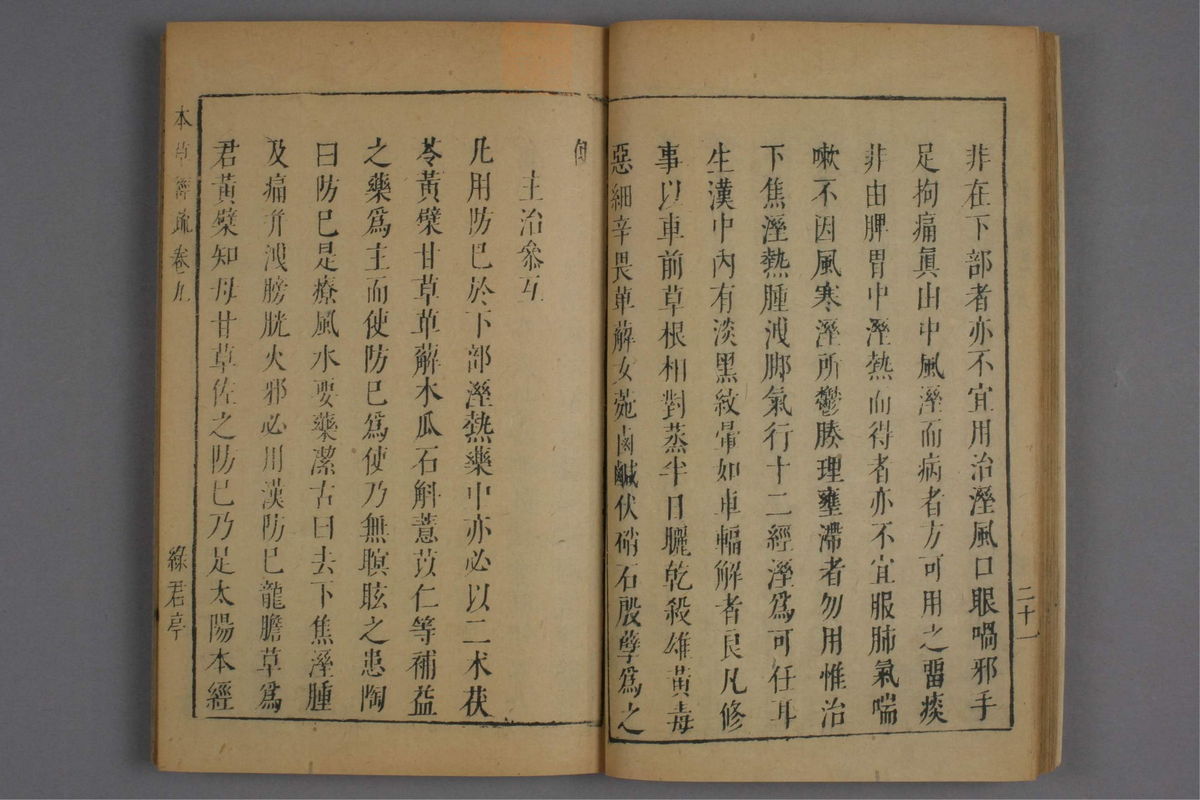 非在下部者亦不宜用治溼風口眼喎邪手
足拘痛眞由中風溼而病者方可用之畱痰
非由脾胃中溼熱而得者亦不宜服肺氣喘
嗽不因風寒溼所鬱腠理壅滯者勿用惟治
下焦溼熱腫洩脚氣行十二經溼爲可任耳
生漢中內有淡黑紋暈如車輻解者良凡修
事以車前草根相對蒸半日曬乾殺雄黃毒
惡細辛畏萆薢女菀鹵鹹伏硝石殷孽爲之
使
主治叅互
凡用防巳於下部溼熱藥中亦必以二术茯
苓黃檗甘草萆薢木瓜石斛薏苡仁等補益
之藥爲主而使防巳爲使乃無瞑眩之患陶
曰防巳是療風水要藥潔古曰去下焦溼腫
及痛幷洩膀胱火邪必用漢防巳龍膽草爲
君黃檗知母甘草佐之防巳乃足太陽本經
本草經疏 卷九
綠君亭
二十一